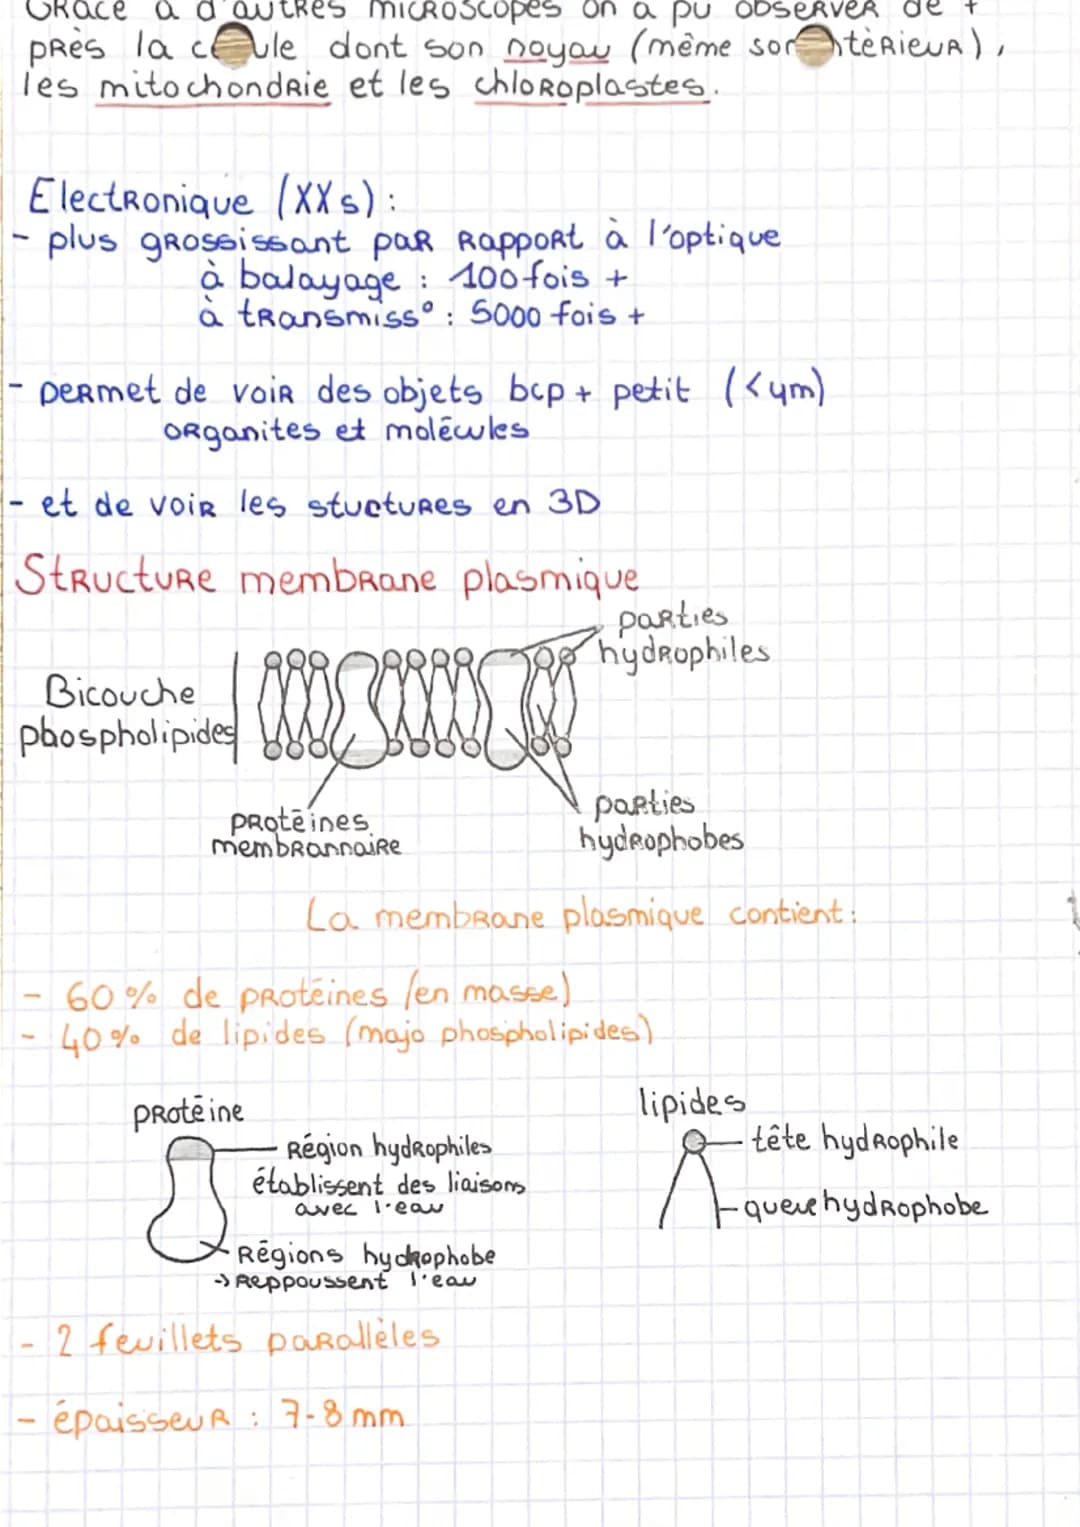 Grâce à d'autres microscopes on a pu observer de +
près la dont son noyau (même
les mitochondrie et les chloroplastes.
Electronique (XXs) :
- plus grossissant par rapport à l'optique
à balayage : 100 fois +
à transmiss° : 5000 fois +
- permet de voir des objets bcp + petit (<µm)
organites et molécules
- et de voir les stuctures en 3D
Structure membrane plasmique
parties
hydrophiles
Bicouche
phospholipides
protéines
membrannaire
parties
hydrophobes
La membrane plasmique contient :
- 60 % de protéines (en masse)
- 40 % de lipides (majo phospholipides)
protéine
Région hydrophiles
établissent des liaisons
avec l'eau
Régions hydrophobe
-> Reppoussent l'eau
lipides
tête hydrophile
queue hydrophobe
- 2 feuillets parallèles
- épaisseur : 7-8 mm